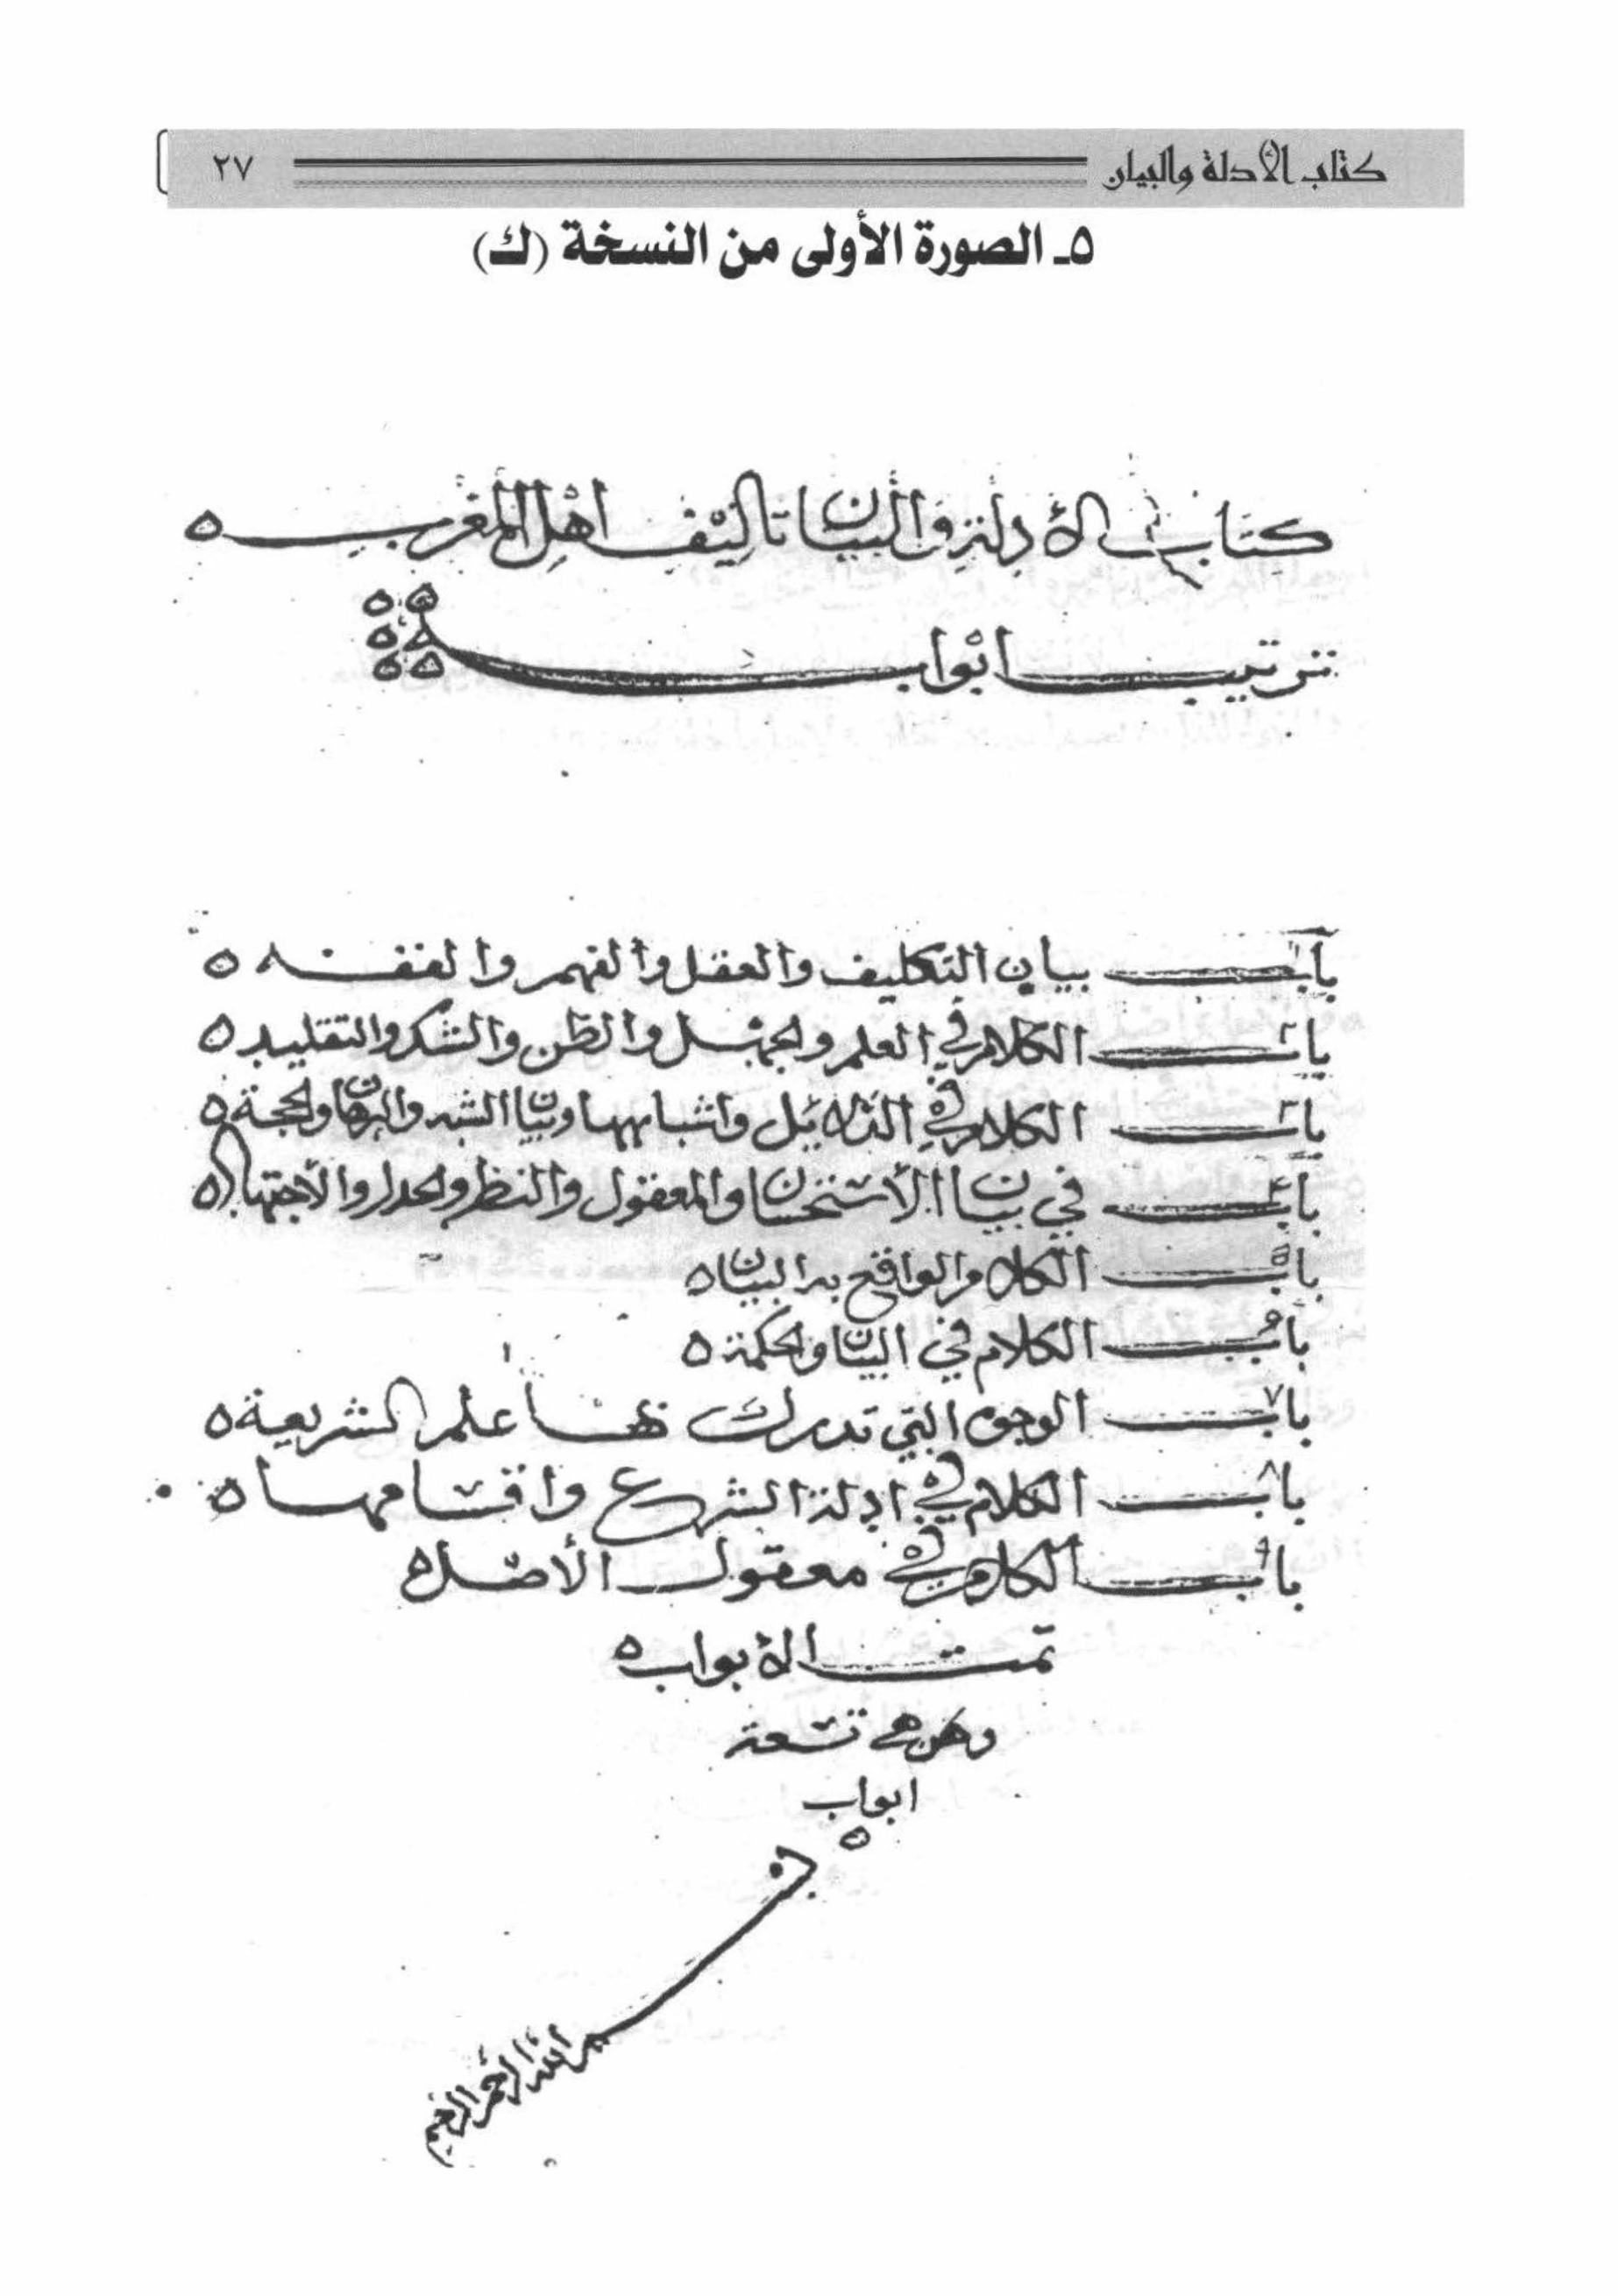 كتاب الأدلة والبيان ٢٧
٥ـ الصورة الأولى من النسخة (ك)
كتاب الأدلة والبيان تاليف اهل المغرب ٥
ترتيب ابوابه
باب ١ بيان التكليف والعقل والفهم والفقه ٥
باب ٢ الكلام في العلم والجهل والظن والشك والتقليد ٥
باب ٣ الكلام في الدلائل واشباهها وبيان الشبه والبرهان والحجة ٥
باب ٤ في بيان الاستحسان والمعقول والنظر والجدل والاجتهاد ٥
باب ٥ الكلام الواقع به البيان ٥
باب ٦ الكلام في البيان والحكمة ٥
باب ٧ الوجوه التي تدرك بها علم الشريعة ٥
باب ٨ الكلام في ادلة الشرع واقسامها ٥
باب ٩ الكلام في معقول الأصل ٥
تمت الأبواب ٥
وهن تسعة
ابواب
٥
بسم الله الرحمن الرحيم